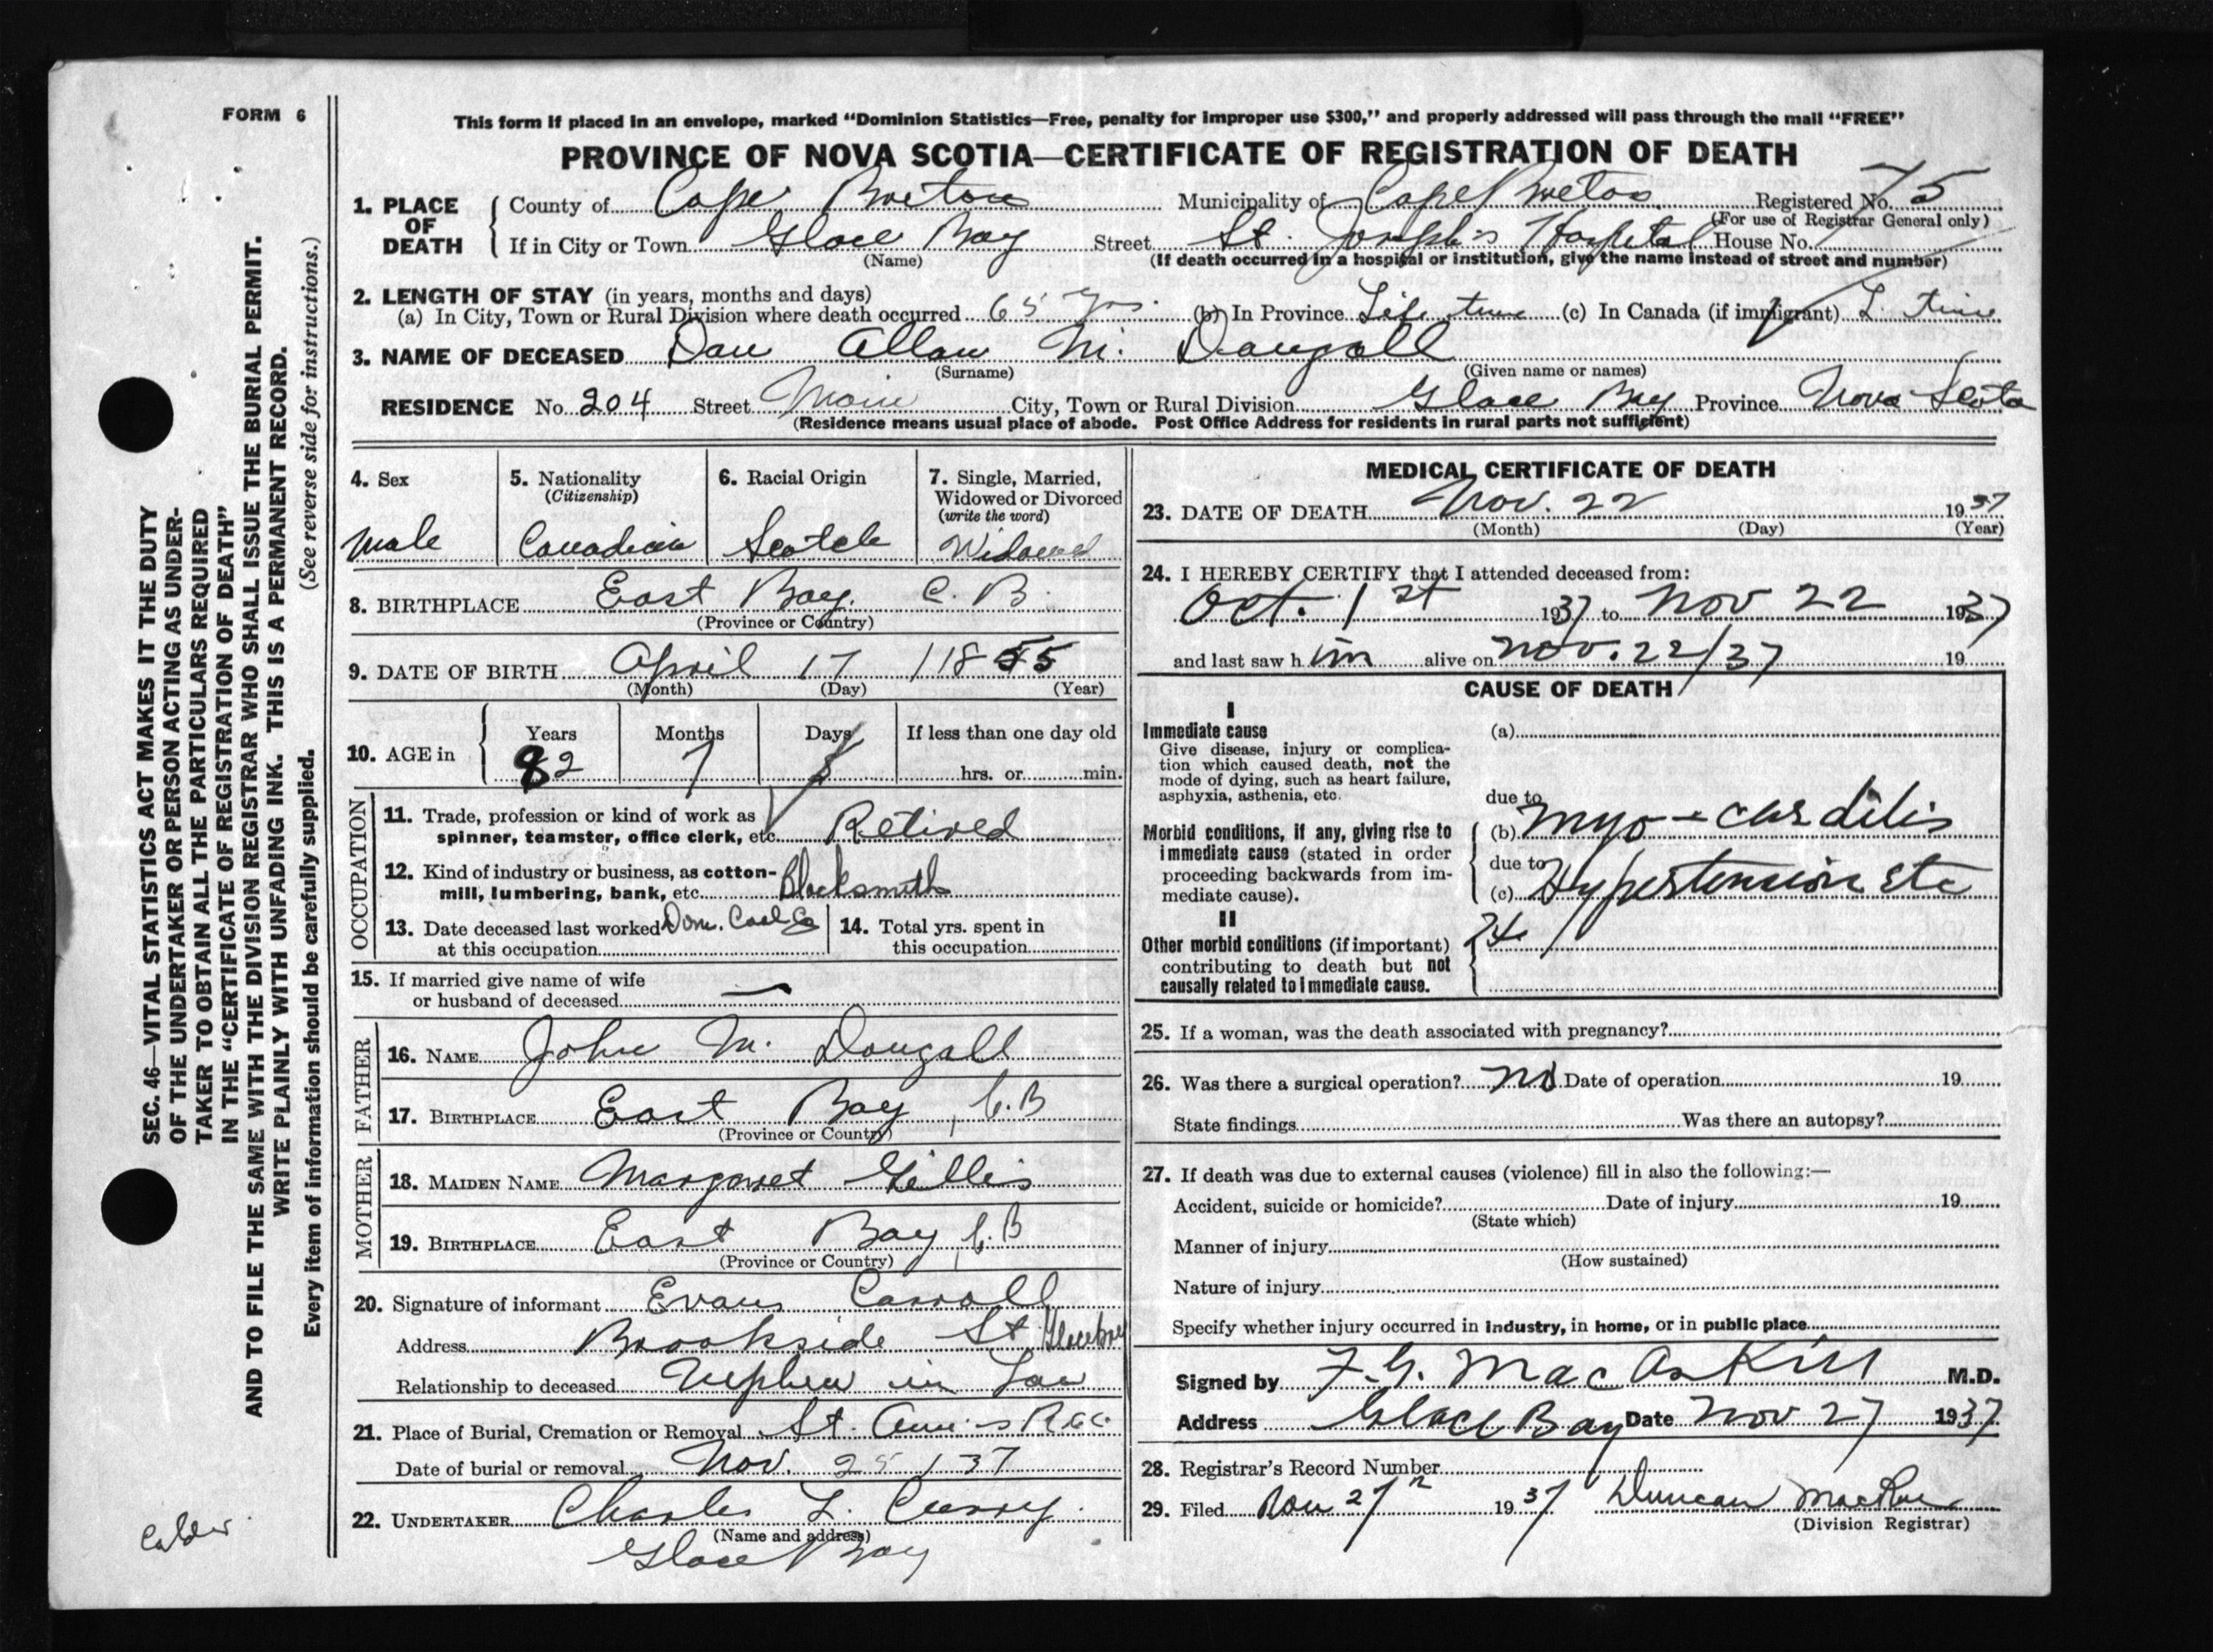 FORM 6
This form if placed in an envelope, marked "Dominion Statistics—Free, penalty for improper use $300," and properly addressed will pass through the mail "FREE"
PROVINCE OF NOVA SCOTIA—CERTIFICATE OF REGISTRATION OF DEATH
1. PLACE OF DEATH { County of Cape Breton Municipality of Cape Breton Registered No. 75
(For use of Registrar General only)
If in City or Town Glace Bay Street St. Joseph's Hospital House No.
(Name) (If death occurred in a hospital or institution, give the name instead of street and number)
2. LENGTH OF STAY (in years, months and days)
(a) In City, Town or Rural Division where death occurred 65 yrs. (b) In Province Life time (c) In Canada (if immigrant) L. time
3. NAME OF DECEASED Dan Allan Mc Dougall
(Surname) (Given name or names)
RESIDENCE No. 204 Street Main City, Town or Rural Division Glace Bay Province Nova Scotia
(Residence means usual place of abode. Post Office Address for residents in rural parts not sufficient)
4. Sex
Male
5. Nationality
(Citizenship)
Canadian
6. Racial Origin
Scotch
7. Single, Married,
Widowed or Divorced
(write the word)
Widowed
8. BIRTHPLACE East Bay. C. B.
(Province or Country)
9. DATE OF BIRTH April 17 1855
(Month) (Day) (Year)
10. AGE in { Years Months Days If less than one day old
82 7 5 hrs. or min.
OCCUPATION
11. Trade, profession or kind of work as
spinner, teamster, office clerk, etc. Retired
12. Kind of industry or business, as cotton-
mill, lumbering, bank, etc. Blacksmith
13. Date deceased last worked Dom. Coal Co
at this occupation
14. Total yrs. spent in
this occupation
15. If married give name of wife
or husband of deceased —
FATHER
16. NAME John Mc Dougall
17. BIRTHPLACE East Bay, C.B
(Province or Country)
MOTHER
18. MAIDEN NAME Margaret Gillis
19. BIRTHPLACE East Bay, C.B
(Province or Country)
20. Signature of informant Evans Carroll
Address Brookside St Glace Bay
Relationship to deceased Nephew in Law
21. Place of Burial, Cremation or Removal St. Ann's
Date of burial or removal Nov. 25 / 37
22. UNDERTAKER Charles L. Curry.
(Name and address)
Glace Bay
MEDICAL CERTIFICATE OF DEATH
23. DATE OF DEATH Nov. 22 1937
(Month) (Day) (Year)
24. I HEREBY CERTIFY that I attended deceased from:
Oct. 1st 1937 to Nov 22 1937
and last saw him alive on Nov. 22/37 19
CAUSE OF DEATH
I
Immediate cause
Give disease, injury or complica-
tion which caused death, not the
mode of dying, such as heart failure,
asphyxia, asthenia, etc.
(a)
due to
Morbid conditions, if any, giving rise to
immediate cause (stated in order
proceeding backwards from im-
mediate cause).
(b) Myo-carditis
due to
(c) Hypertension etc
II
Other morbid conditions (if important)
contributing to death but not
causally related to immediate cause.
25. If a woman, was the death associated with pregnancy?
26. Was there a surgical operation? No. Date of operation 19
State findings Was there an autopsy?
27. If death was due to external causes (violence) fill in also the following:—
Accident, suicide or homicide? Date of injury 19
(State which)
Manner of injury
(How sustained)
Nature of injury
Specify whether injury occurred in industry, in home, or in public place
Signed by F. G. MacAskill M.D.
Address Glace Bay Date Nov 27 1937
28. Registrar's Record Number
29. Filed Nov 27th 1937 Duncan MacRae
(Division Registrar)
SEC. 46—VITAL STATISTICS ACT MAKES IT THE DUTY
OF THE UNDERTAKER OR PERSON ACTING AS UNDER-
TAKER TO OBTAIN ALL THE PARTICULARS REQUIRED
IN THE "CERTIFICATE OF REGISTRATION OF DEATH"
AND TO FILE THE SAME WITH THE DIVISION REGISTRAR WHO SHALL ISSUE THE BURIAL PERMIT.
WRITE PLAINLY WITH UNFADING INK. THIS IS A PERMANENT RECORD.
Every item of information should be carefully supplied. (See reverse side for instructions.)